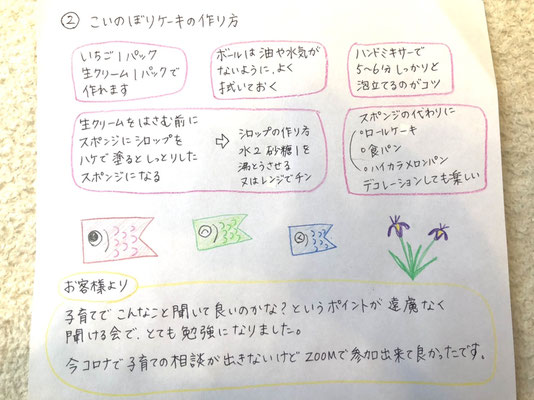 ② こいのぼりケーキの作り方
いちご1パック
生クリーム1パックで
作れます
ボールは油や水気が
ないように、よく
拭いておく
ハンドミキサーで
5~6分しっかりと
泡立てるのがコツ
生クリームをはさむ前に
スポンジにシロップを
ハケで塗るとしっとりした
スポンジになる
⇨
シロップの作り方
水2 砂糖1を
沸とうさせる
又はレンジでチン
スポンジの代わりに
○ロールケーキ
○食パン
○ハイカラメロンパン
デコレーションしても楽しい
お客様より
子育てでこんなこと聞いて良いのかな?というポイントが遠慮なく
聞ける会で、とても勉強になりました。
今コロナで子育ての相談が出きないけどZOOMで参加出来て良かったです。